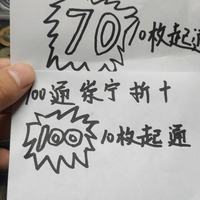 70 10枚起通
100通崇宁折十
100 10枚起通